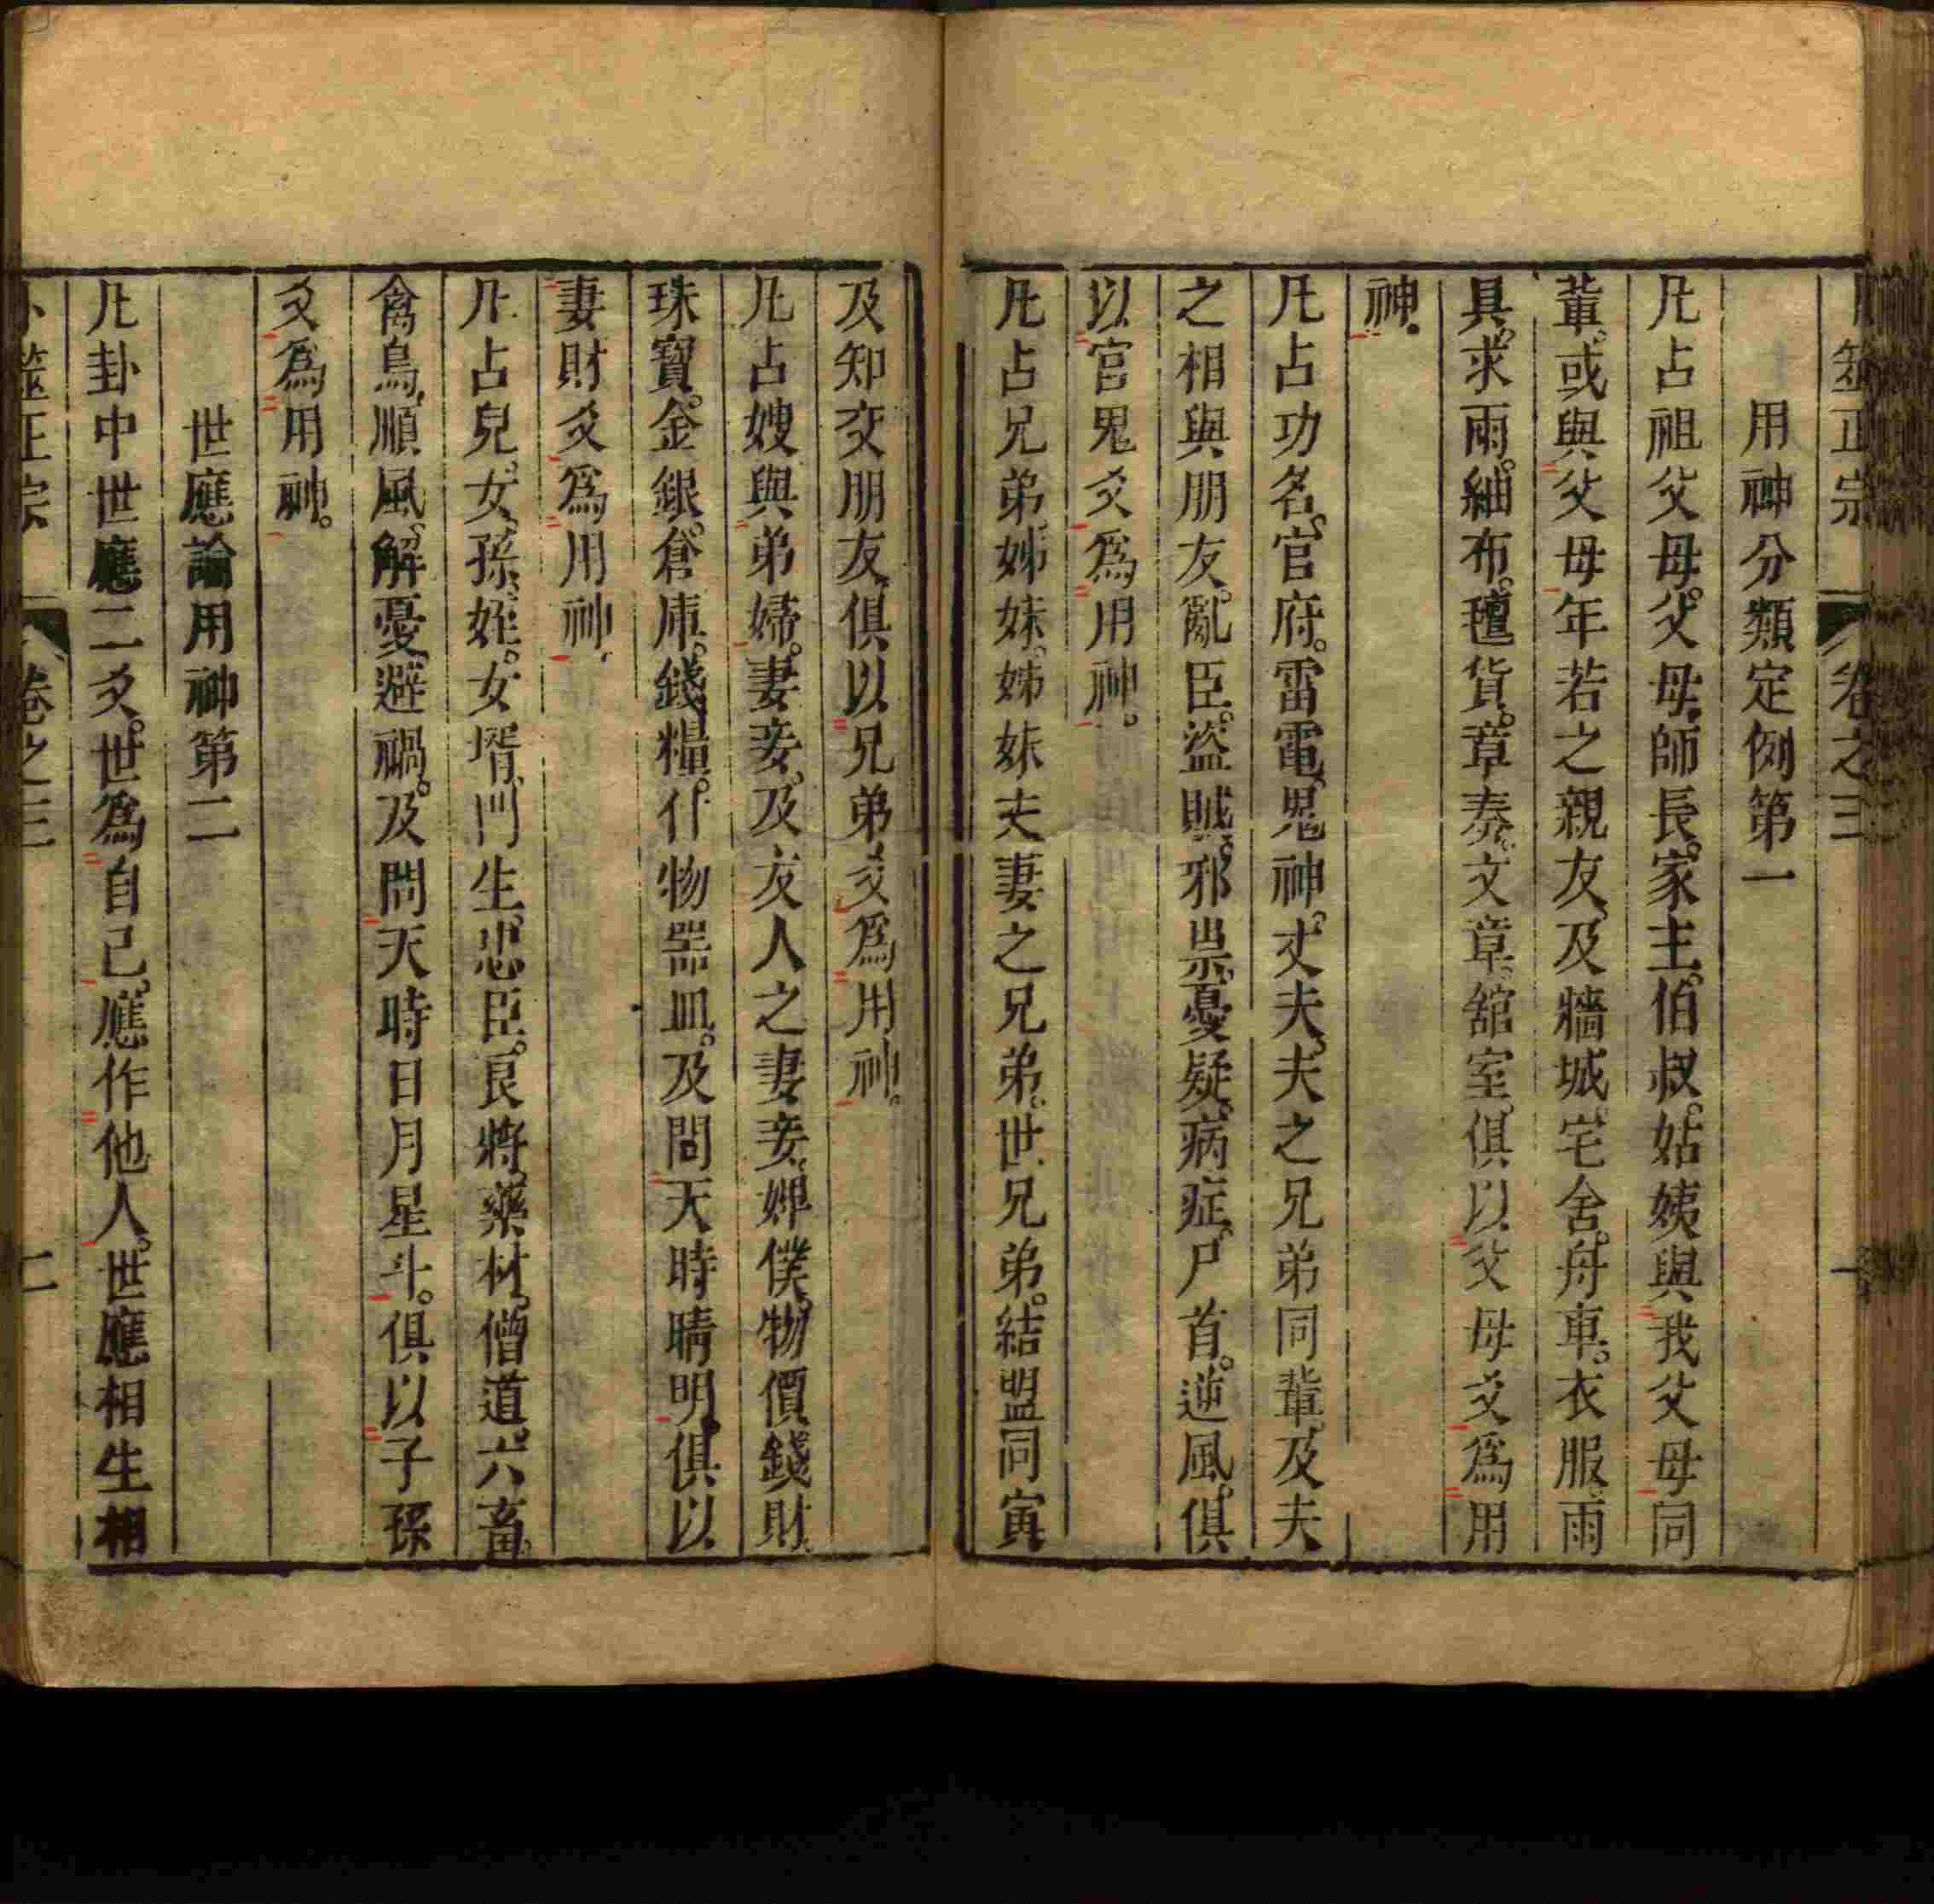 卜筮正宗 卷之三 一
用神分類定例第一
凡占祖父母。父母。師長。家主。伯叔。姑姨與我父母同
輩。或與父母年若之親友、及牆城宅舍。舟車。衣服。雨
具。求雨。紬布。氊貨。章奏。文章。舘室。俱以父母爻爲用
神。
凡占功名。官府。雷電。鬼神。丈夫。夫之兄弟同輩、及夫
之相與朋友。亂臣。盜賊。邪祟。憂疑。病症。尸首。逆風。俱
以官鬼爻爲用神。
凡占兄弟。姊妹。姊妹夫妻之兄弟。世兄弟。結盟同寅
及知交朋友、俱以兄弟爻爲用神。
凡占嫂與弟婦。妻妾、及友人之妻妾。婢僕。物價錢財。
珠寳。金銀。倉庫。錢糧。什物器皿。及問天時晴明、俱以
妻財爻爲用神。
凡占兒。女。孫。姪。女壻。門生。忠臣。良將。藥材。僧道。六畜。
禽鳥。順風。解憂。避禍。及問天時日月星斗。俱以子孫
爻爲用神。
世應論用神第二
凡卦中世應二爻。世爲自己。應作他人。世應相生相
卜筮正宗 卷之三 二